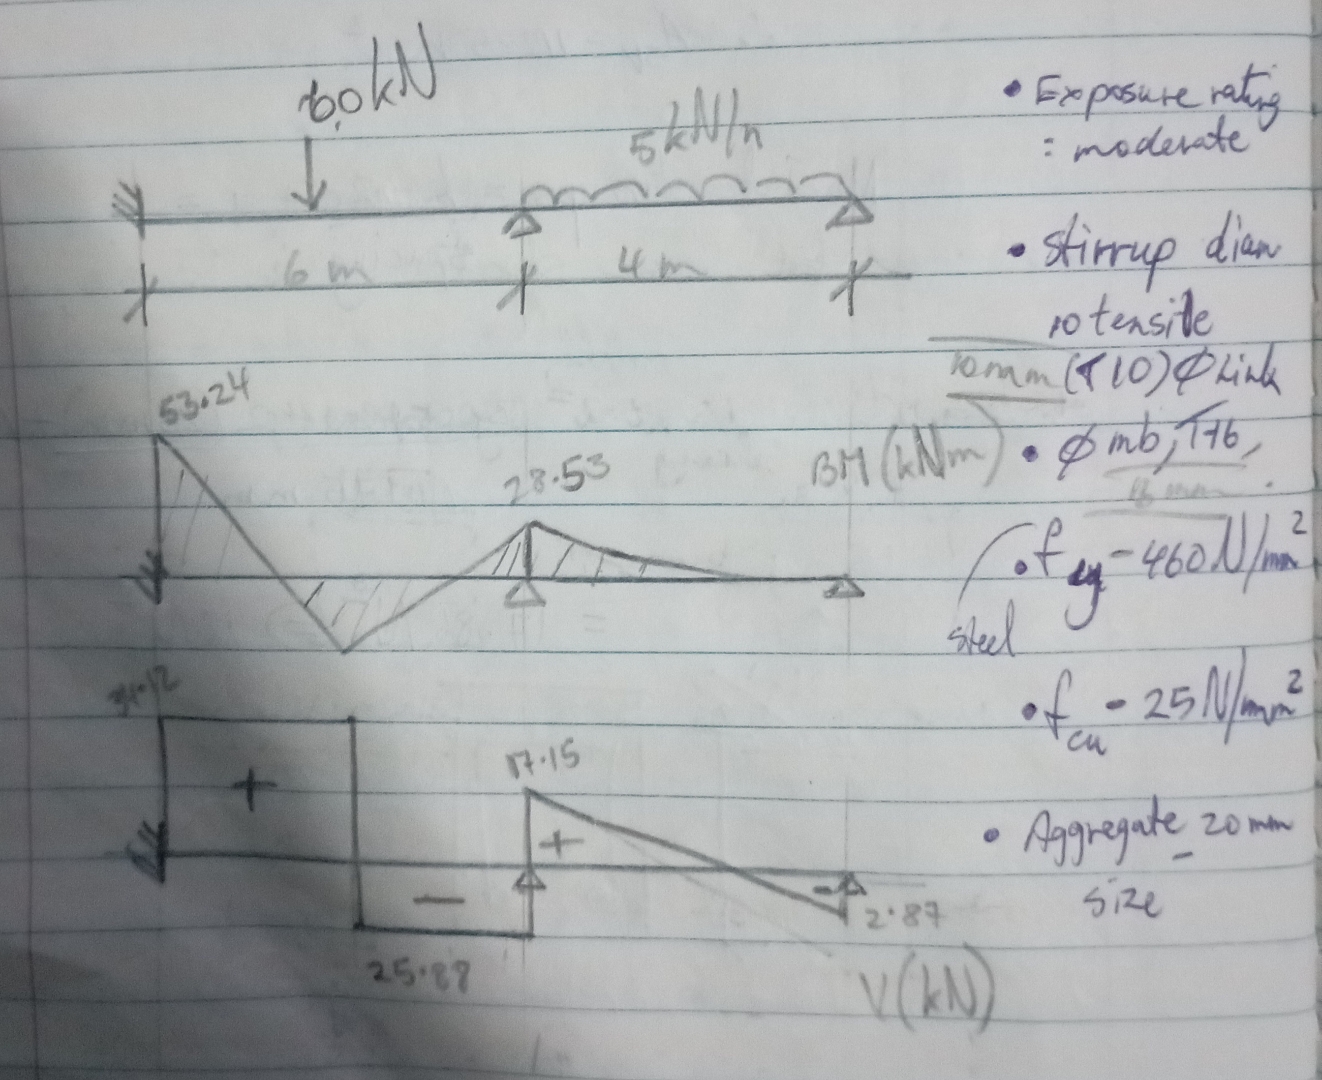 60kN
5kN/m
6m
4m
• Exposure rating
: moderate
• Stirrup diam
10 tensile
10mm (T10) φ Link
• φ mb, T16,
16mm
• fy - 460 N/mm²
steel
• fcu - 25 N/mm²
• Aggregate - 20mm
size
53.24
28.53
BM (kNm)
34.12
+
-
25.88
17.15
+
-
2.87
V(kN)